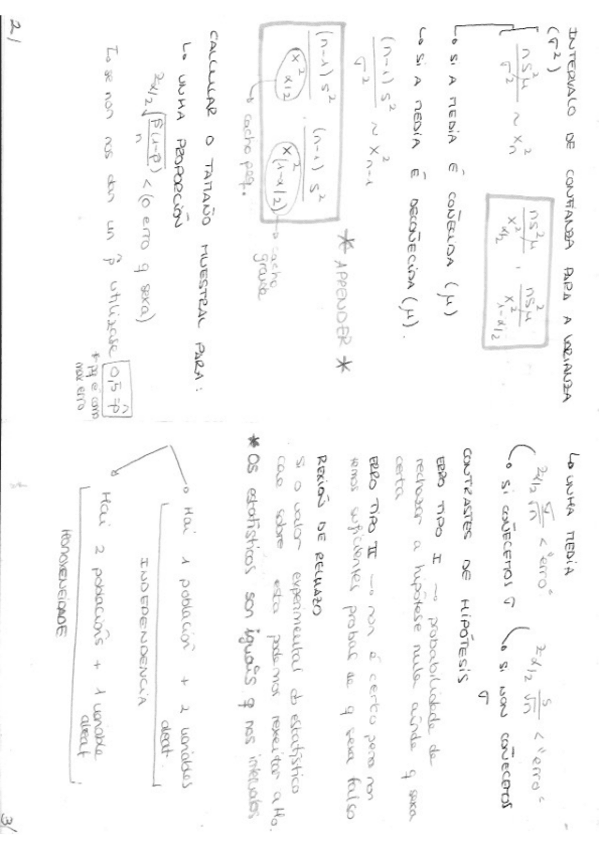 INTERVALO DE CONFIANZA PARA A VARIANZA
(σ²)
nS²μ / σ² ~ χ²n
nS²μ / χ²α/2 , nS²μ / χ²1-α/2
↳ SI A MEDIA É COÑECIDA (μ)
↳ SI A MEDIA É DECOÑECIDA (μ).
(n-1) S² / σ² ~ χ n-1
(n-1) S² / χ² α/2 . (n-1) S² / χ² (1-α/2)
* APPENDER *
↳ cacho peq.
→ cacho
grande
CALCULAR O TAMAÑO MUESTRAL PARA:
↳ UNHA PROPORCIÓN
Zα/2 √(p̂(1-p̂)/n) < (o erro q sexa)
↳ se non nos dan un p̂ utilízase 0,5 = p̂
* pq é con
max erro
2/
↳ UNHA MEDIA
Zα/2 σ/√n < "erro"
↳ SI COÑECEMOS σ
Zα/2 S/√n < "erro"
↳ SI NON COÑECEMOS
σ
CONTRASTES DE HIPÓTESIS
ERRO TIPO I → probabilidade de
rechazar a hipótese nula ainda q sexa
certa
ERRO TIPO II → non é certo pero non
temos suficientes probas de q sexa falso
REXIÓN DE REXAZO
Si o valor experimental do estatístico
cae sobre esta podemos rexeitar a Ho.
* Os estatísticos son iguais q nos intervalos
→ Hai 1 población + 2 variables
aleat
INDEPENDENCIA
→ Hai 2 poboacións + 1 variable
aleat
HOMOXENEIDADE
3/